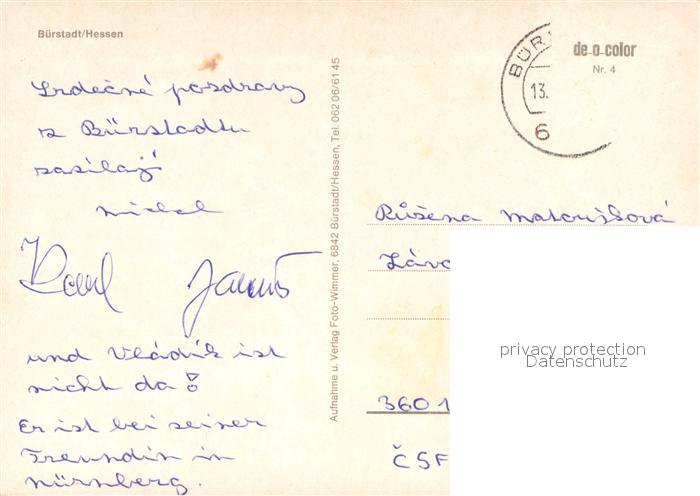 Bürstadt/Hessen
Srdečné pozdravy
z Bürstadtu
zasílají
Michal
Karl
und Vládík ist
nicht da!
Er ist bei seiner
Freundin in
Nürnberg.
Aufnahme u. Verlag Foto-Wimmer, 6842 Bürstadt/Hessen, Tel. 06206/6145
BÜR
13.
6
de-o-color
Nr. 4
Růžena Matoušková
360 1
ČSF
privacy protection
Datenschutz